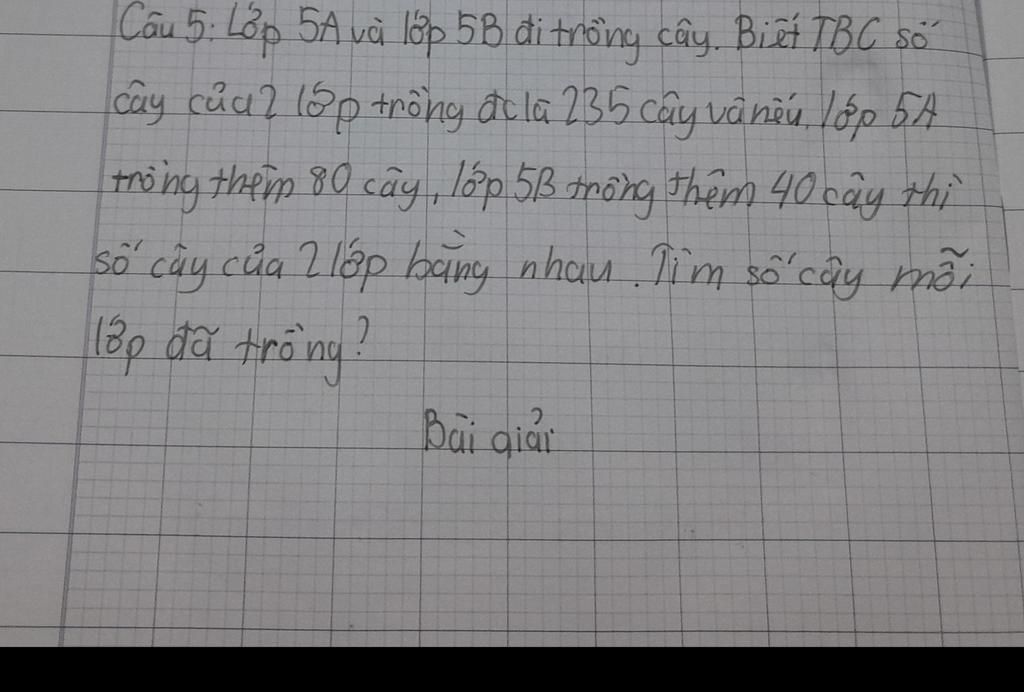 Câu 5: Lớp 5A và lớp 5B đi trồng cây. Biết TBC số
cây của 2 lớp trồng đc là 235 cây và nếu lớp 5A
trồng thêm 80 cây, lớp 5B trồng thêm 40 cây thì
số cây của 2 lớp bằng nhau. Tìm số cây mỗi
lớp đã trồng?
Bài giải